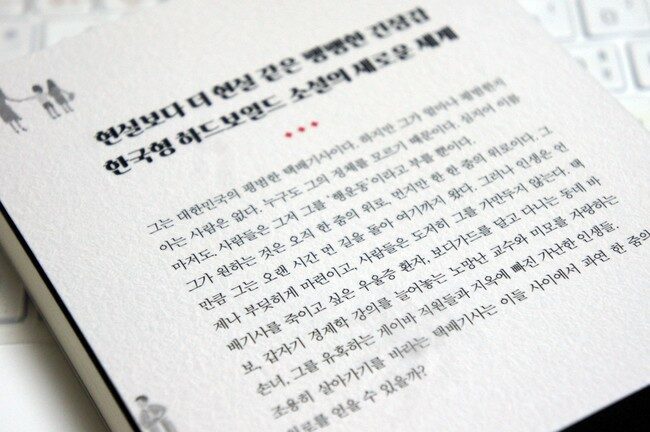 현실보다 더 현실 같은 팽팽한 긴장감
한국형 하드보일드 소설의 새로운 세계
그는 대한민국의 평범한 택배기사이다. 하지만 그가 얼마나 평범한지
아는 사람은 없다. 누구도 그의 정체를 모르기 때문이다. 심지어 이름
마저도. 사람들은 그저 그를 '행운동'이라고 부를 뿐이다.
그가 원하는 것은 오직 한 줌의 위로, 먼지만 한 한 줌의 위로이다. 그
만큼 그는 오랜 시간 먼 길을 돌아 여기까지 왔다. 그러나 인생은 언
제나 부딪히게 마련이고, 사람들은 도저히 그를 가만두지 않는다. 택
배기사를 죽이고 싶은 우울증 환자, 보디가드를 달고 다니는 동네 바
보, 갑자기 경제학 강의를 늘어놓는 노망난 교수와 미모를 자랑하는
손녀, 그를 유혹하는 게이바 직원들과 지옥에 빠진 가난한 인생들.
조용히 살아가기를 바라는 택배기사는 이들 사이에서 과연 한 줌의
위로를 얻을 수 있을까?